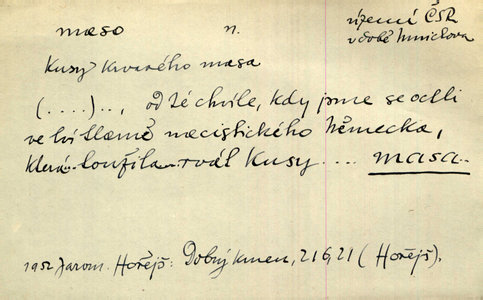 maso n. území ČSR
v době Mnichova
Kusy krvavého masa
(....).., od té chvíle, kdy jsme se octli
ve lví tlamě nacistického Německa,
která..toužila..rvát kusy .... masa..
1952 Jarom. Hořejš: Dobrý kmen, 216,21 (Hořejš).